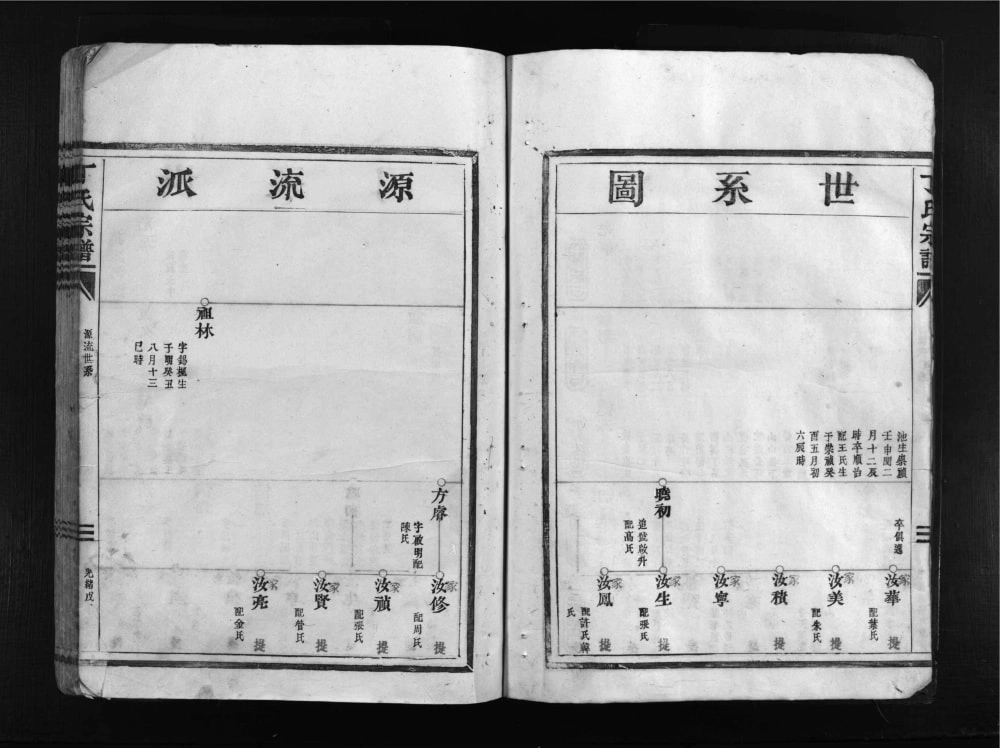 世系圖
池生崇禎
壬申閏二
月十二辰
時卒順治
配王氏生
于崇禎癸
酉五月初
六辰時
卒俱遷
曉初
追號啟升
配高氏
汝華
家
提
配葉氏
汝美
家
提
配朱氏
汝積
家
提
汝寧
家
提
汝生
家
提
配張氏
汝鳳
家
提
配許氏韓
氏
源流派
祖林
字錫楓生
于明癸丑
八月十三
巳時
方睿
字啟明配
陳氏
汝修
家
提
配周氏
汝禎
家
提
配張氏
汝賢
家
提
配管氏
汝亮
家
提
配金氏
丁氏宗譜
源流世系
光緒戊